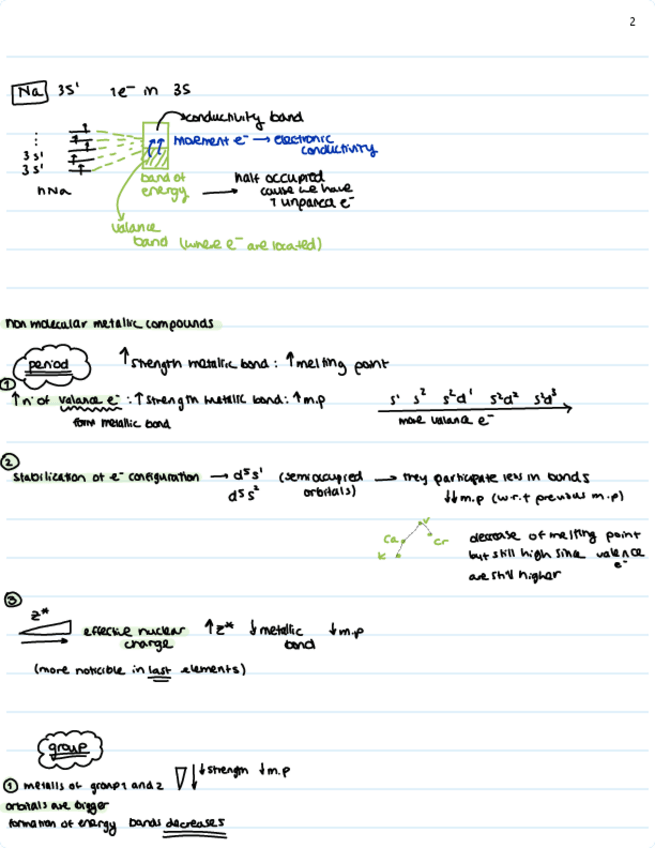 2
Na 3s¹ 1e⁻ in 3s
conductivity band
movement e⁻ → electronic
conductivity
3s¹
3s¹
nNa
band of
energy → half occupied
cause we have
1 unpared e⁻
valance
band (where e⁻ are located)
non molecular metallic compounds
period ↑strength metallic bond: ↑melting point
① ↑nº of valance e⁻: ↑strength metallic bond: ↑m.p
form metallic bond
s¹ s² s²d¹ s²d² s²d³
more valence e⁻
②
stabilization of e⁻ configuration → d⁵s¹ (semioccupied → they participate less in bonds
d⁵s² orbitals) ↓↓m.p (w.r.t previous m.p)
K Ca V Cr
decrease of melting point
but still high since valence
e⁻
are still higher
③
z* effective nuclear ↑z* ↓metallic ↓m.p
charge bond
(more noticible in last elements)
group
① metalls of group 1 and 2 ↓strength ↓m.p
orbitals are bigger
formation of energy bands decreases